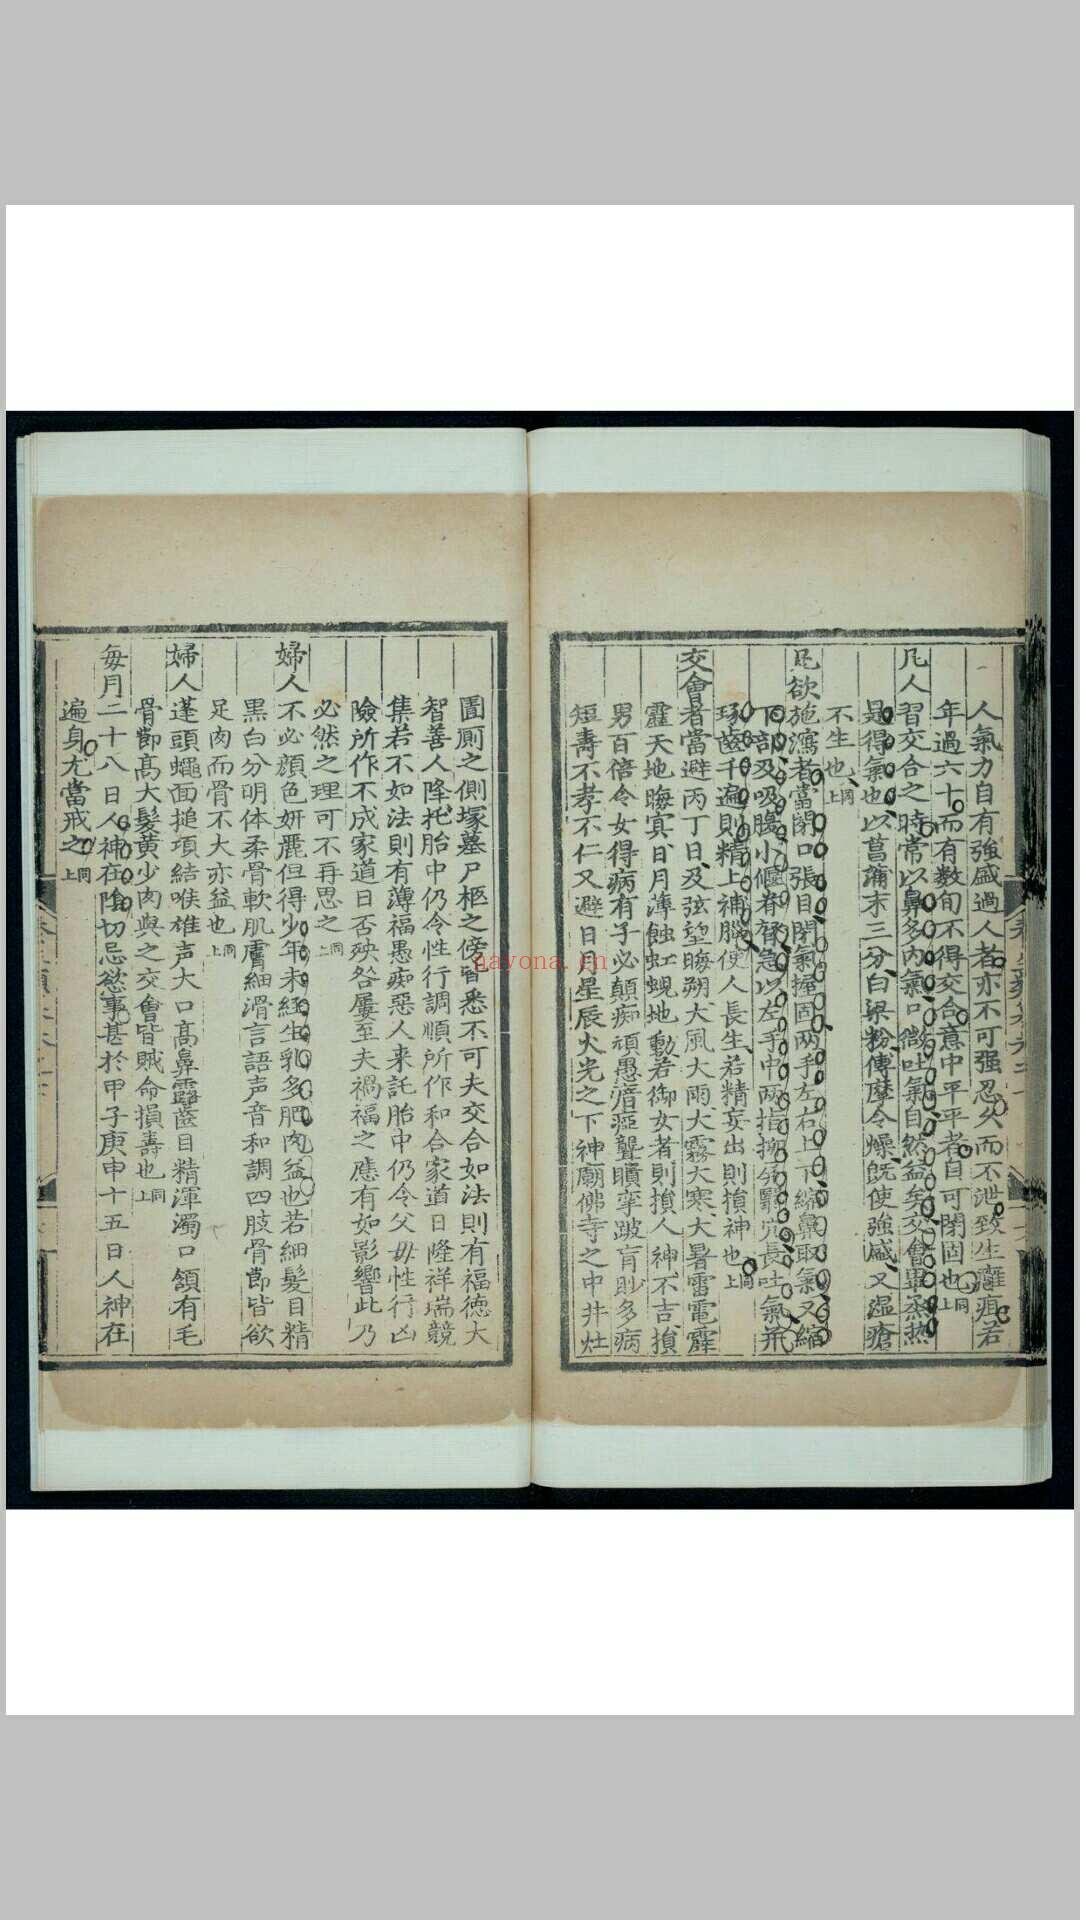 人氣力自有強盛過人者亦不可强忍久而不泄致生癰疽若
年過六十而有数旬不得交合意中平平者自可閉固也上同
凡人習交合之時常以鼻多内氣口微吐氣自然益矣交會畢蒸熱
是得氣也以菖蒲末三分白梁粉傅摩令燥既使強盛又湿瘡
不生也上同
凡欲施瀉者當閉口張目閉氣握固两手左右上下縮鼻取氣又縮
下部及吸腹小偃脊膂急以左手中两指抑屏翳穴長吐氣并
琢齒千遍則精上補腦使人長生若精妄出則損神也上同
交會者當避丙丁日及弦望晦朔大風大雨大霧大寒大暑雷電霹
靂天地晦㝠日月薄蝕虹蜺地動若御女者則損人神不吉損
男百倍令女得病有子必顛痴頑愚瘖瘂聾聵孿跛盲眇多病
短壽不孝不仁又避日月星辰火光之下神廟佛寺之中井灶
圊厠之側塚墓尸柩之傍皆悉不可夫交合如法則有福德大
智善人降托胎中仍令性行調順所作和合家道日隆祥瑞競
集若不如法則有薄福愚痴惡人来託胎中仍令父母性行凶
險所作不成家道日否殃咎屢至夫禍福之應有如影響此乃
必然之理可不再思之上同
婦人不必顔色妍麗但得少年未經生乳多肥肉益也若細髮目精
黑白分明体柔骨軟肌膚細滑言語声音和調四肢骨節皆欲
足肉而骨不大亦益也上同
婦人蓬頭蠅面搥項結喉雄声大口高鼻露齒目精渾濁口頷有毛
骨節髙大髮黄少肉與之交會皆賊命損壽也上同
每月二十八日人神在陰切忌慾事甚於甲子庚申十五日人神在
遍身尤當戒之上同
nayona.cn